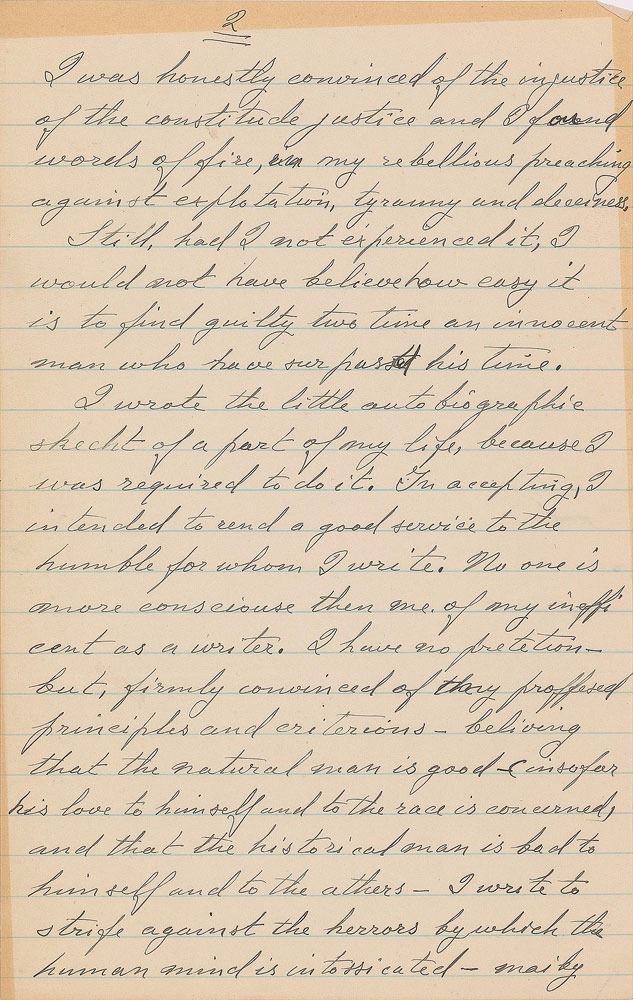 2
I was honestly convinced of the injustice
of the constitude justice and I found
words of fire, in my rebellious preaching
against explotation, tyranny and deceiness.
Still, had I not experienced it, I
would not have believe how easy it
is to find guilty two time an innocent
man who have surpasst his time.
I wrote the little autobiographic
skecht of a part of my life, because I
was required to do it. In accepting, I
intended to rend a good service to the
humble for whom I write. No one is
more consciouse then me. of my ineffi
cent as a writer. I have no pretetion–
but, firmly convinced of my proffesed
principles and criterions – beliving
that the natural man is good – (insofar
his love to himself and to the race is concerned,
and that the historical man is bad to
himself and to the athers – I write to
strife against the herrors by which the
human mind is intossicated – mai by